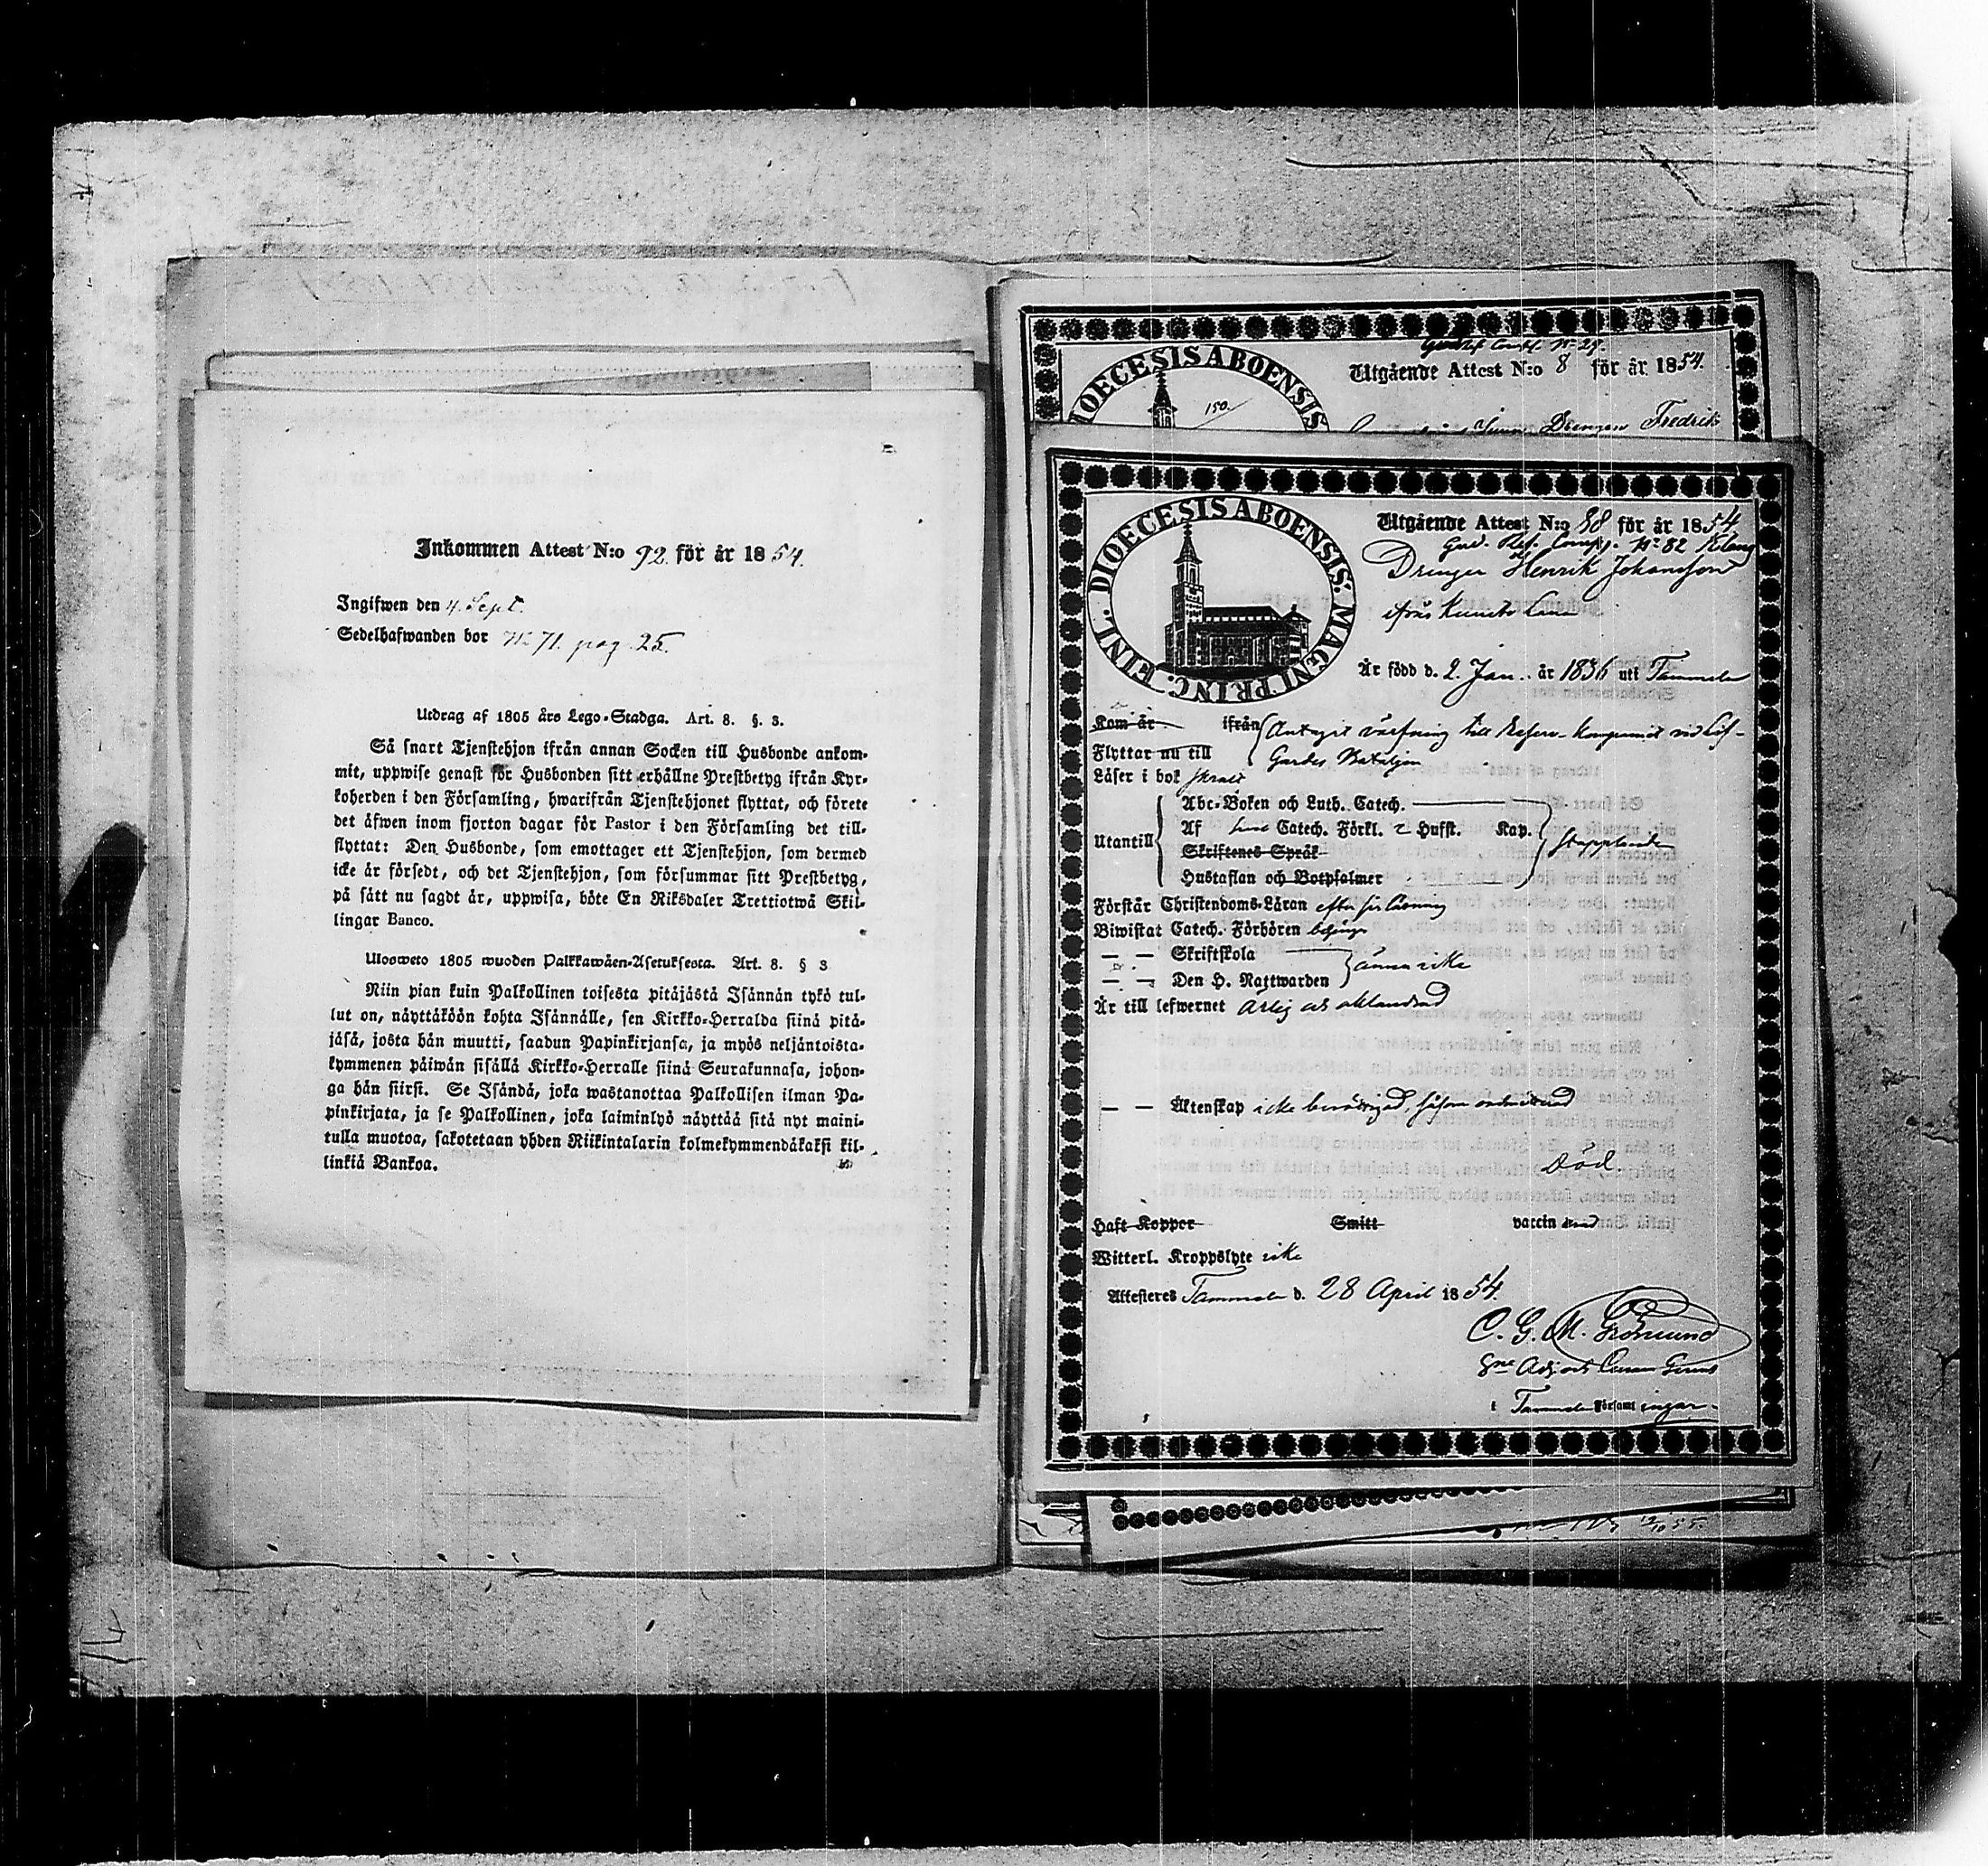 Inkommen Attest N:o 92. för år 1854.
Ingifwen den 4. Sept.
Sedelhafwanden bor N:o 71. pag. 25.
Utdrag af 1805 års Lego-Stadga. Art. 8. §. 3.
Så snart Tjenstehjon ifrån annan Socken till Husbonde ankom-
mit, uppwise genast för Husbonden sitt erhållne Prestbetyg ifrån Kyr-
koherden i den Församling, hwarifrån Tjenstehjonet flyttat, och förete
det äfwen inom fjorton dagar för Pastor i den Församling det till-
flyttat: Den Husbonde, som emottager ett Tjenstehjon, som dermed
icke är försedt, och det Tjenstehjon, som försummar sitt Prestbetyg,
på sätt nu sagdt är, uppwisa, böte En Riksdaler Trettiotwå Skil-
lingar Banco.
Ulosweto 1805 wuoden Palkkawäen-Asetuksesta. Art. 8. § 3
Niin pian kuin Palkollinen toisesta pitäjästä Isännän tykö tul-
lut on, näyttäköön kohta Isännälle, sen Kirkko-Herralda siinä pitä-
jäsä, josta hän muutti, saadun Papinkirjansa, ja myös neljäntoista-
kymmenen päiwän sisällä Kirkko-Herralle siinä Seurakunnasa, johon-
ga hän siirsi. Se Isändä, joka wastanottaa Palkollisen ilman Pa-
pinkirjata, ja se Palkollinen, joka laiminlyö näyttää sitä nyt maini-
tulla muotoa, sakotetaan yhden Riikintalarin kolmekymmendäkaksi kil-
linkiä Bankoa.
DIOECESIS ABOENSIS
150.
Utgående Attest N:o 8 för år 1854.
Drengen Fredrik
DIOECESIS ABOENSIS. MAGNI PRINC. FINL.
Utgående Attest N:o 88 för år 1854
Gard. Res. Comp. N:o 82 Klang
Drengen Henrik Johansson
ifrån
Är född d. 2. Jan. år 1836 uti Tammela
Kom år ifrån Antagit värfning till Reserv-Kompaniet vid Lif-
Flyttar nu till Gardes Bataljon
Läser i bok svait
Abc-Boken och Luth. Catech.
Utantill Af Catech. Förkl. Husst. Kap. stapplande
Skriftenes Språk
Hustaflan och Botpsalmer
Förstår Christendoms-Läran efter sin läsning
Biwistat Catech. Förhören
— — Skriftskola
— — Den H. Nattwarden ännu icke
Är till lefwernet ärlig och oklandrad
— — Äktenskap icke berättigad, såsom
Död.
Haft Kopper Smitt vaccin erad
Witterl. Kroppslyte icke
Attesteres Tammela d. 28 April 1854.
C. G. M. Grönlund
Adjunct
i Tammela Församl ingar.